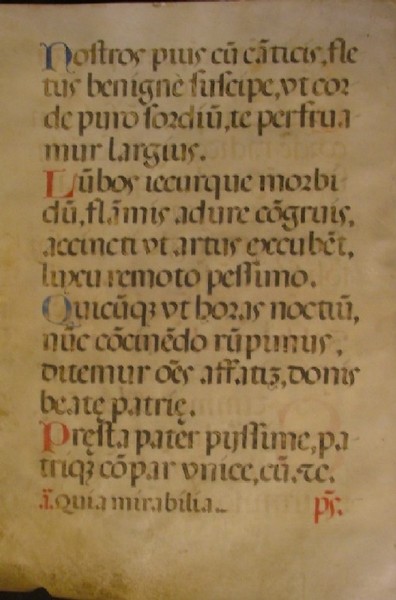 Nostros pius cū cāticis, fle
tus benignè suscipe, vt cor
de puro sordiū, te perfrua
mur largius.
Lūbos iecurque morbi
dū, flāmis adure cōgruis,
accincti vt artus excubēt,
luxu remoto pessimo.
Quicūqȝ vt horas noctiū,
nūc cōcinēdo rūpimus,
ditemur oēs affatiȝ, donis
beatę patrię.
Pręsta pater pijssime, pa
triqȝ cōpar vnice, cū. ⁊c.
ā. Quia mirabilia.
ps̄.